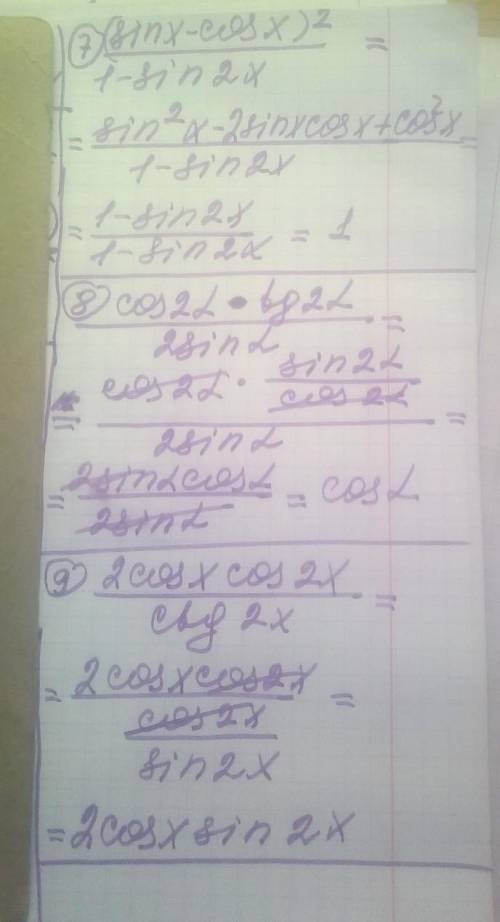 ⑦ (sinx-cosx)² / (1-sin2x) =
= (sin²x-2sinxcosx+cos²x) / (1-sin2x) =
= (1-sin2x) / (1-sin2x) = 1
⑧ (cos2α · tg2α) / (2sinα) =
= (cos2α · (sin2α / cos2α)) / (2sinα) =
= (2sinαcosα) / (2sinα) = cosα
⑨ (2cosx cos2x) / (ctg 2x) =
= (2cosxcos2x) / (cos2x / sin2x) =
= 2cosx sin2x